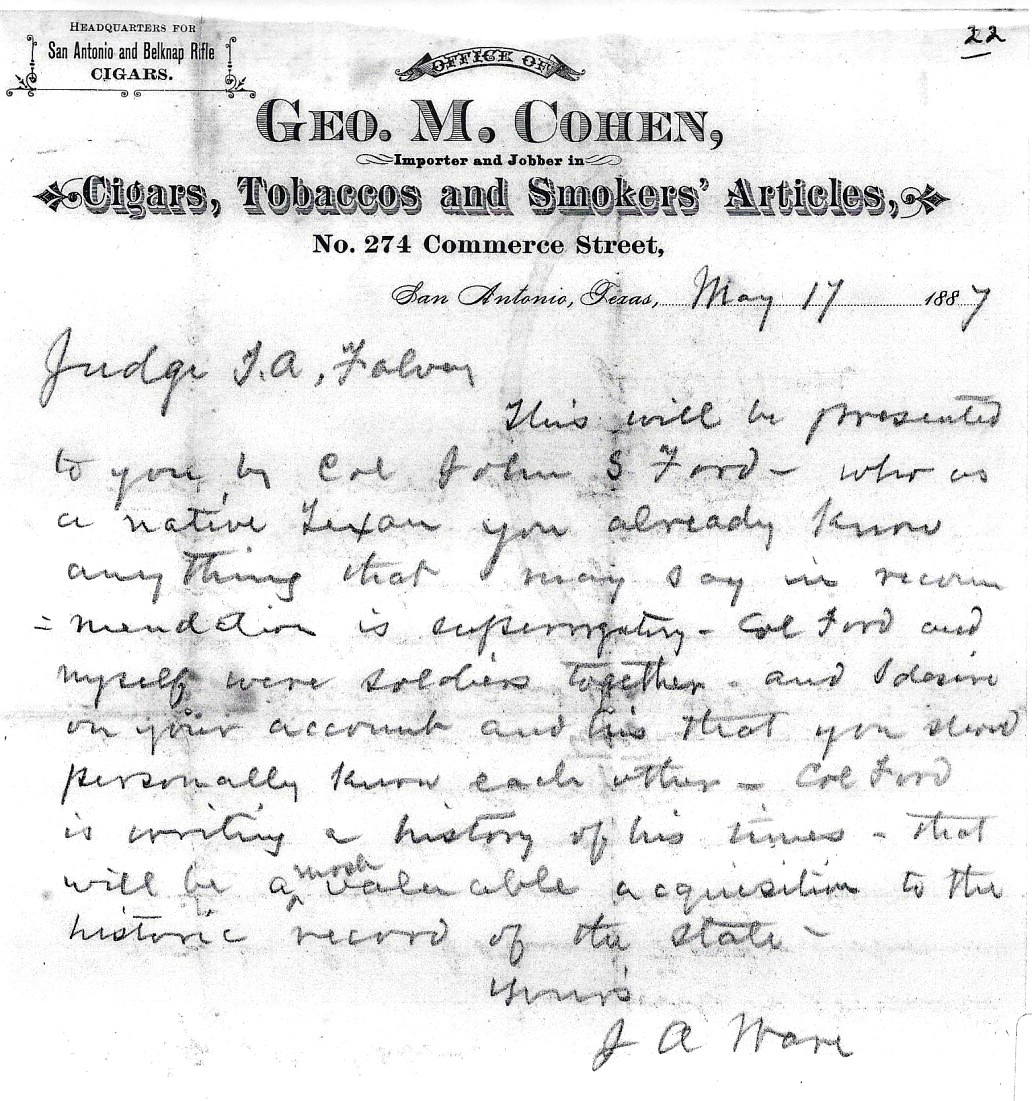 22
HEADQUARTERS FOR
San Antonio and Belknap Rifle
CIGARS.
OFFICE OF
GEO. M. COHEN,
Importer and Jobber in
Cigars, Tobaccos and Smokers' Articles,
No. 274 Commerce Street,
San Antonio, Texas, May 17 1887
Judge T.A,
This will be presented
to you by Col John S Ford – who as
a native Texan you already know
any thing that I may say in recom
= mendation is - Col Ford and
myself were soldiers together - and I desire
on your account and his that you
personally know each other – Col Ford
is writing a history of his times - that
will be a most valuable acquisition to the
historic record of the state –
Yours
J A Ware